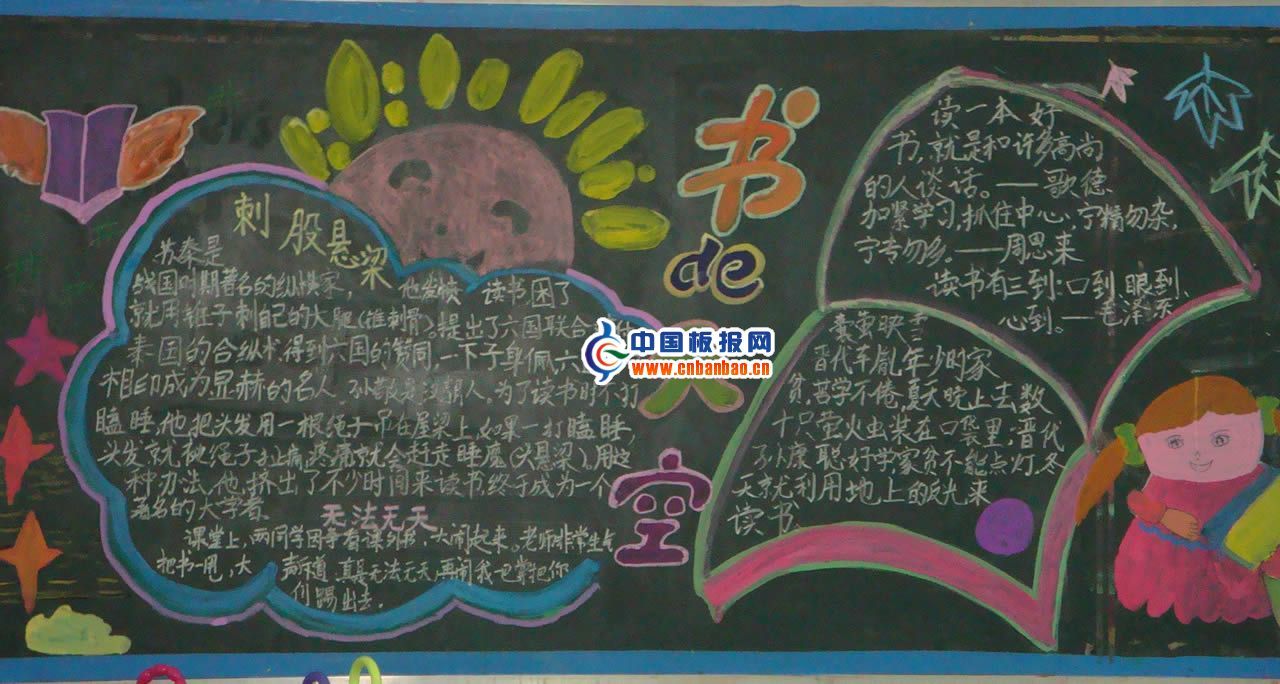 刺股悬梁
苏秦是
战国时期著名的纵横家， 他发愤 读书困了
就用锥子刺自己的大腿(锥刺骨)提出了六国联合
秦国的合纵术得到六国的赞同，一下子身佩六
相印成为显赫的名人 孙敬 为了读书时不打
瞌睡，他把头发用一根绳子吊在屋梁上，如果一打瞌睡，
头发就被绳子扯痛，疼痛就会赶走睡魔(头悬梁)。用这
种办法，他挤出了不少时间来读书，终于成为一个
著名的大学者
无法无天
课堂上，两同学因争看课外书，大闹起来。老师非常生气
把书一甩，大 声道：真是无法无天，再闹我 把你
们踢出去。
书
de
天
空
中国板报网
www.cnbanbao.cn
读一本好
书，就是和许多高尚
的人谈话。——歌德
加紧学习，抓住中心，宁精勿杂，
宁专勿多。——周恩来
读书有三到：口到、眼到、
心到。——毛泽东
囊萤映雪
晋代车胤年少时家
贫，苦学不倦，夏天晚上去数
十只萤火虫装在口袋里；晋代
孙康聪 好学家贫不能点灯，冬
天就利用地上的反光来
读书